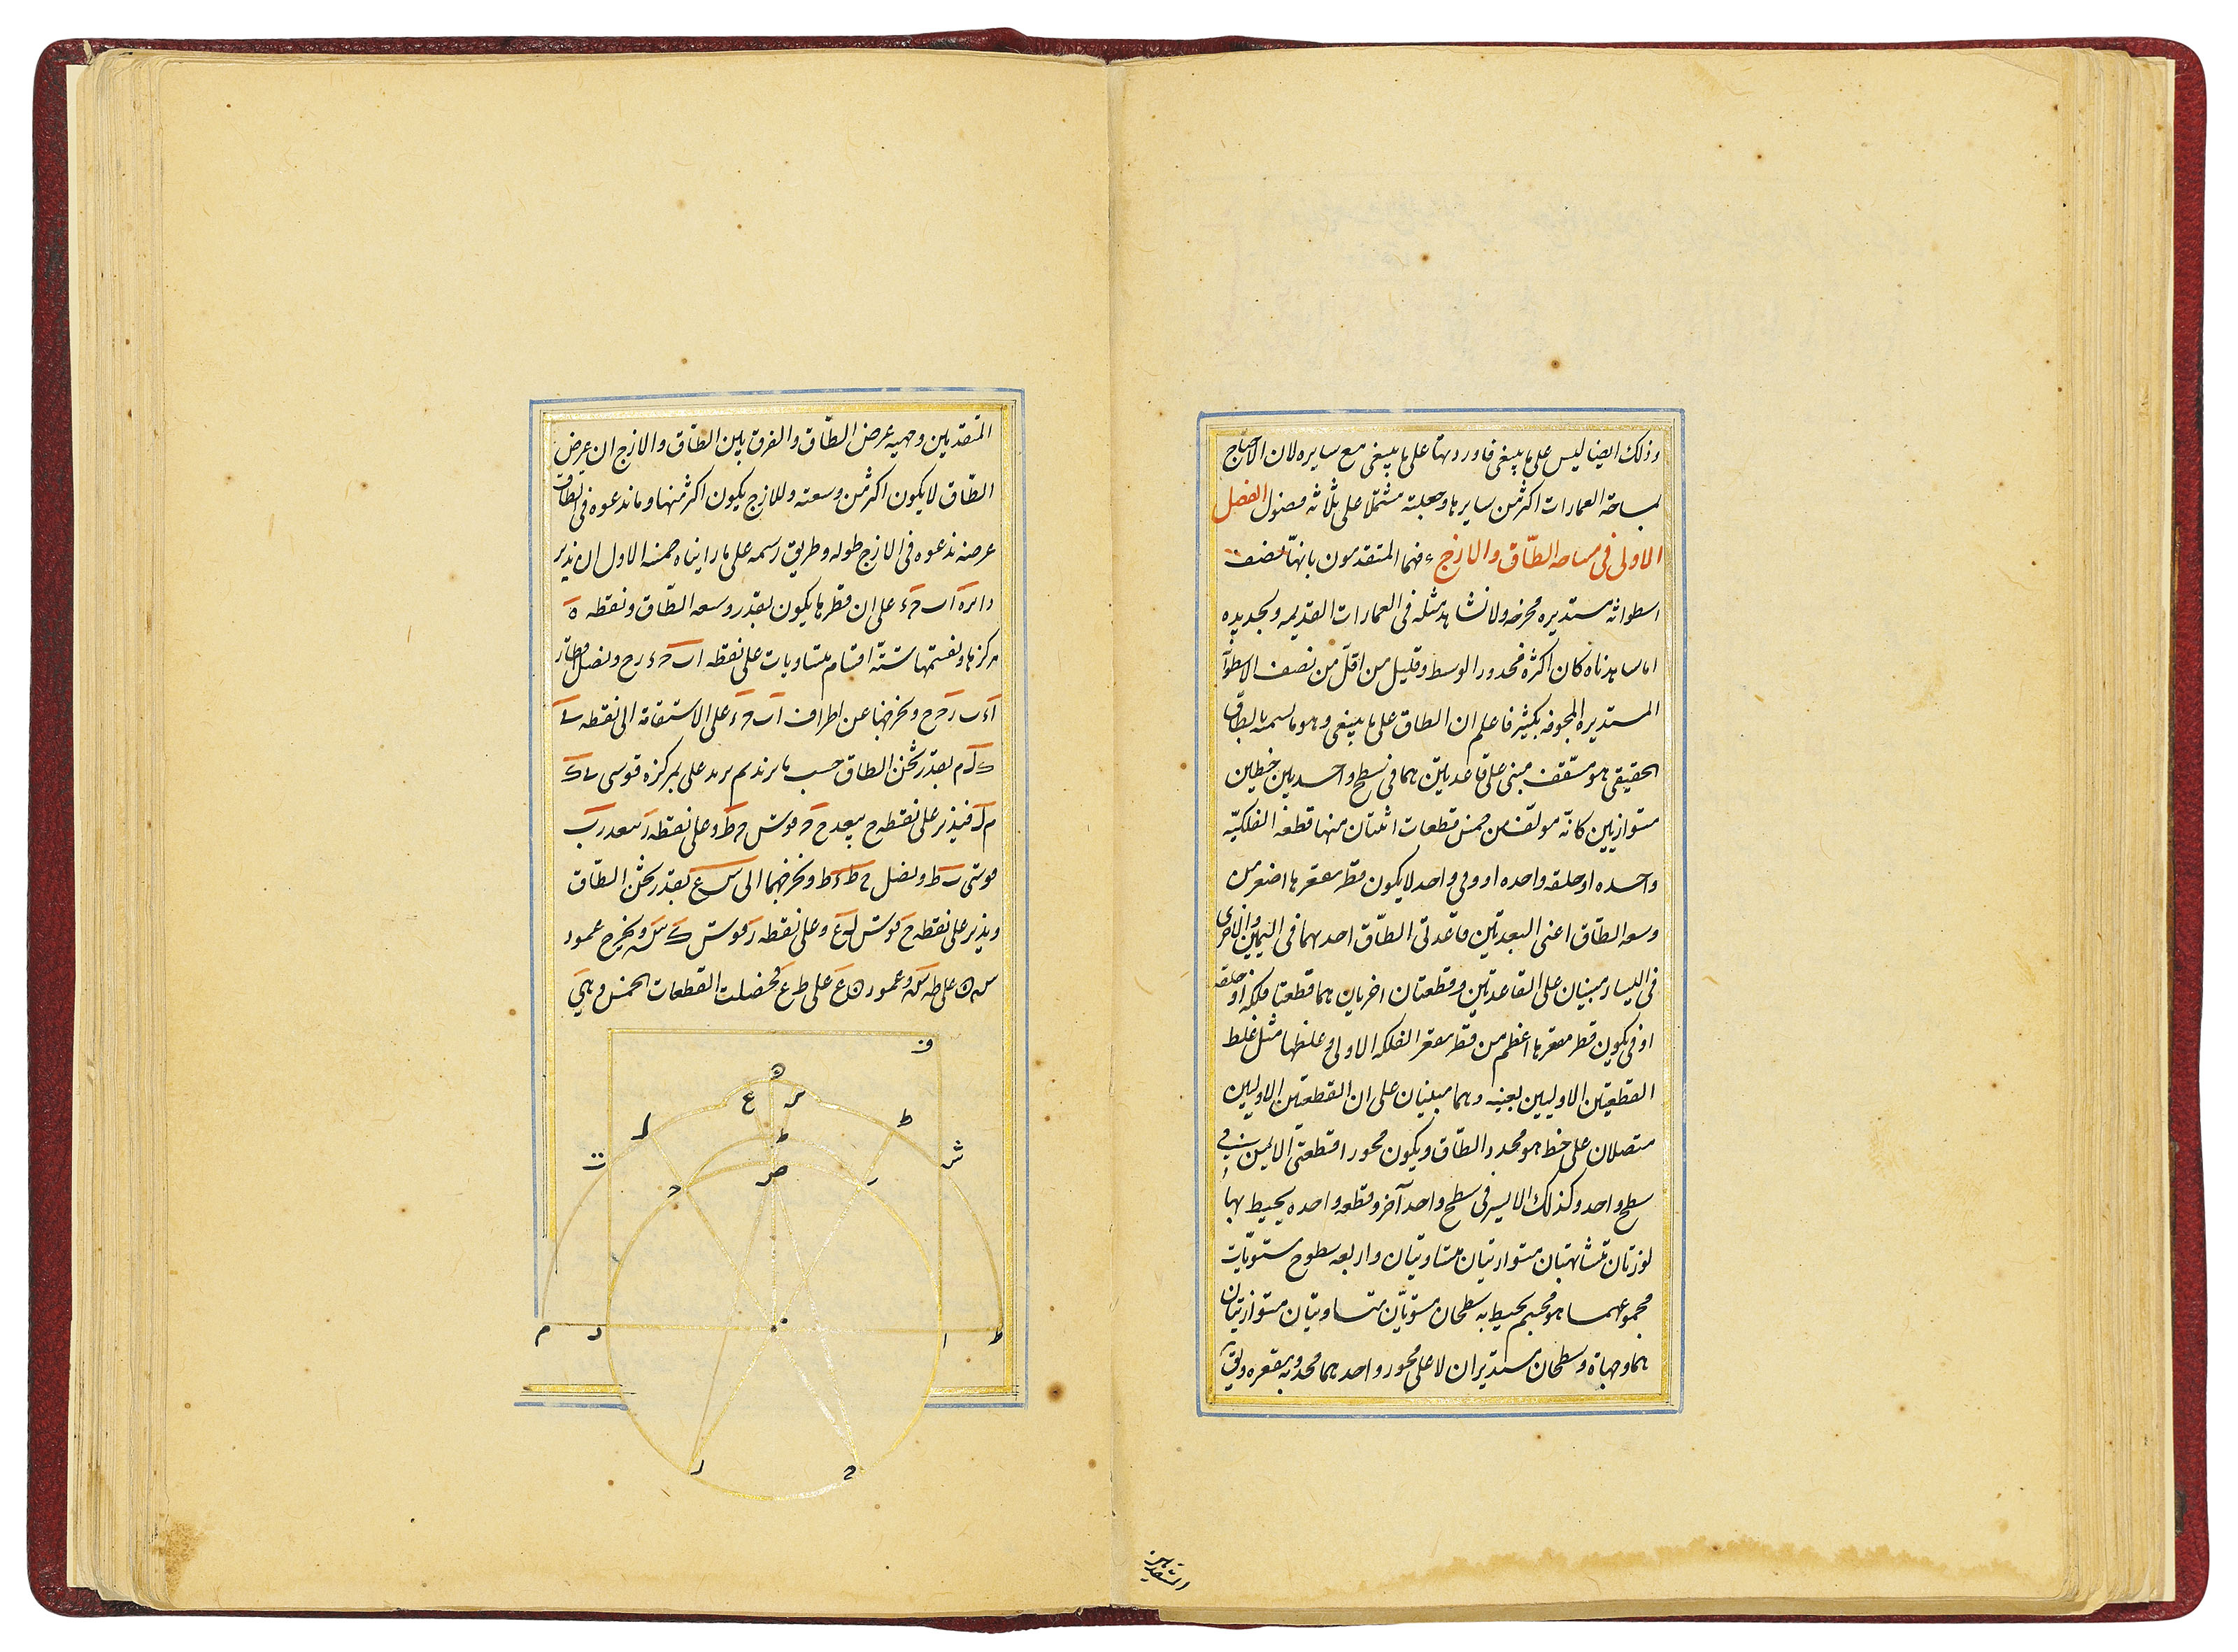 وذلك ايضا ليس على ما ينبغى فاوردتها على ما ينبغى مع سايره لان الاحتياج
لمساحة العمارات اكثر من سايرها وجعلته مشتملا على ثلاثه فصول الفصل
الاولى فى مساحه الطاق والازج عرفهما المتقدمون بانهما نصف
اسطوانه مستديره مجوفه ولا نشاهد مثله فى العمارات القديمه والجديده
اما ما شاهدناه كان اكثره محدود الوسط وقليل من اقل من نصف الاسطوانه
المستديره المجوفه بكثير فاعلم ان الطاق على ما ينبغى وهو ما نسميه بالطاق
الحقيقى هو مسقف مبنى على قاعدتين هما فى سطح واحد بين خطين
متوازيين كانه مولف من خمس قطعات اثنتان منها قطعة الفلكيه
واحده او حلقه واحده او دف واحد لا يكون قطر مقعرها اصغر من
وسعه الطاق اعنى البعد بين قاعدتى الطاق احدهما فى اليمين والاخرى
فى اليسار مبنيان على القاعدتين وقطعتان اخريان هما قطعتا فلكه او حلقه
او دف يكون قطر مقعرها اعظم من قطر مقعر الفلكه الاولى وغلظها مثل غلظ
القطعتين الاوليين بعينه وهما مبنيان على ان القطعتين الاوليين
متصلان على خط هو محدب الطاق ويكون محورا قطعتى الايمن فى
سطح واحد وكذلك الايسر فى سطح واحد آخر وقطعه واحده يحيط بها
لوزتان متشابهتان متوازيتان متساويتان واربعه سطوح مستويات
مجموعهما هو مجسم يحيط به سطحان مستويان متساويان متوازيان
هما وجهاه وسطحان مستديران لا على محور واحد هما محدبه ومقعره
المتقدمين
المتقدمين وجهيه عرض الطاق والفرق بين الطاق والازج ان عرض
الطاق لا يكون اكثر من وسعته وللازج يكون اكثر منها وما ندعوه فى الطاق
عرضه ندعوه فى الازج طوله وطريق رسمه على ما راينا خمسه الاول ان ندير
دايره اب حء على ان قطرها يكون بقدر وسعه الطاق ونقطه ه
مركزها ونقسمها ستة اقسام متساويات على نقطه اب حء رح ونصل اقطار
اء ب ر حح ونخرجها عن اطراف اب حء على الاستقامة الى نقطه
ك ل م بقدر ثخن الطاق حسب ما نريد ثم ندير على مركزه قوسى
م ل فندير على نقطه ح ببعد ح ح قوس ح ط وعلى نقطه ر ببعد ر ب
قوس ب ط ونصل ح ط ر ط ونخرجهما الى س ع بقدر ثخن الطاق
وندير على نقطه ح قوس ل ع وعلى نقطه ر قوس ك س ونخرج عمود
س ن على ط س وعمود ن ع على ط ع فحصلت القطعات الخمس وهى
ف
ن
ع
س
ل
ط
ت
ش
ط
ص
ح
ب
م
د
ه
ا
ط
ر
ح